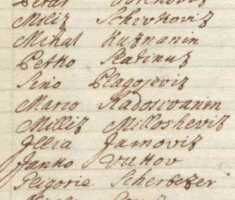 Miliz Schivkoviz
Mihal Kuznanin
Petko Ratinuz
Simo Plagojeviz
Marco Radosivanin
Milliz Milloscheviz
Illia Jarnoviz
Janko Vukov
Gligorie Scherbezer